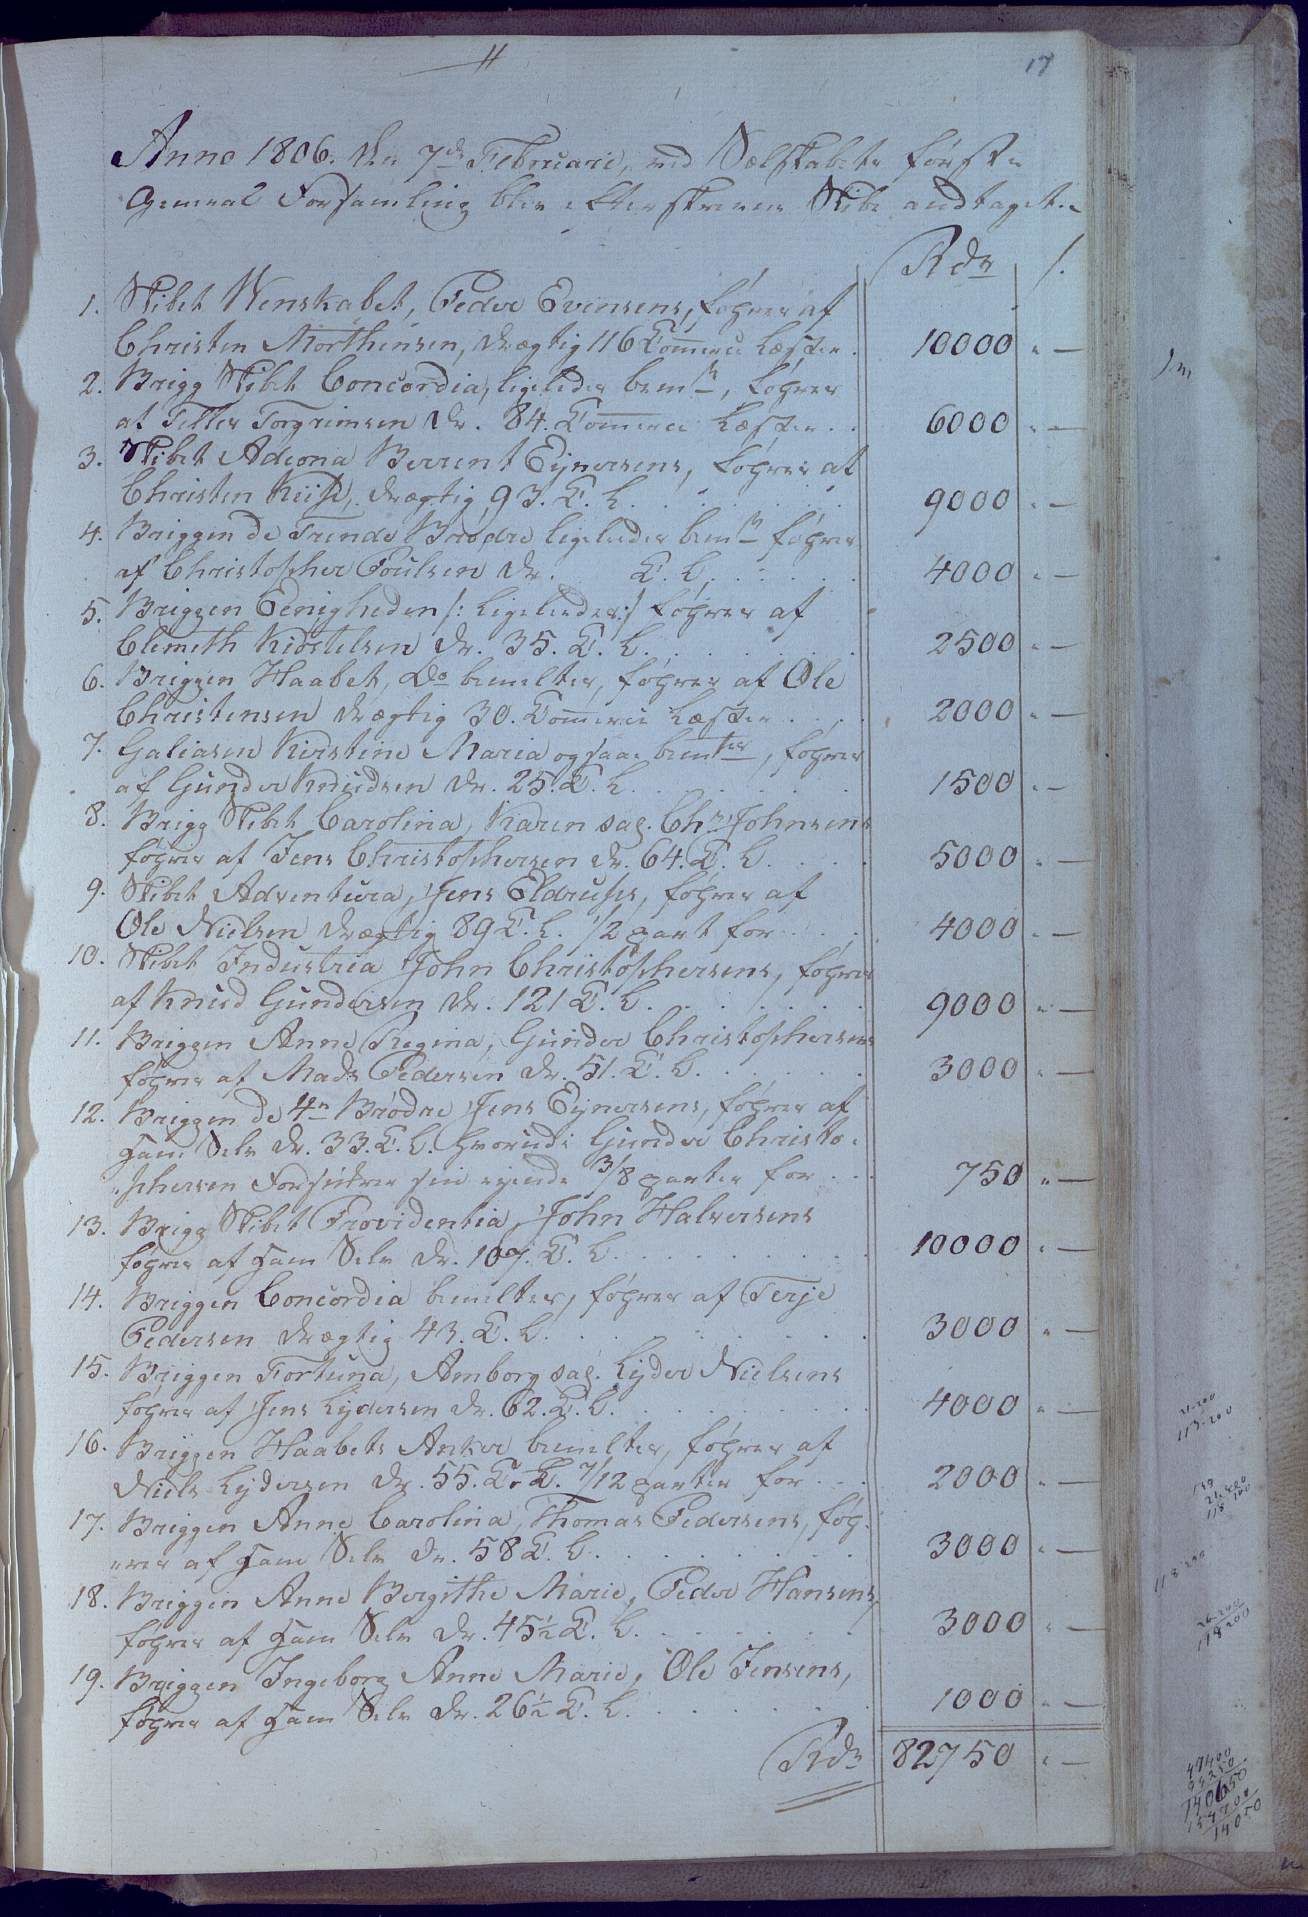 17
Anno 1806. den 7de Februarii, ved Selskabets første
General Forsamling blev efterskrevne Skibe andtaget:
Rdr ß.
1. Skibet Wenskabet, Peder Evensens, føhres af
Christen Morthensen, drægtig 116 Commerce Læster. 10000 " —
2. Brigg Skibet Concordia, ligeledes bemte, føhres
af Telles Torgrimsen Dr. 84. Commerce Læster . . 6000 " —
3. Skibet Adeona Berrent Eÿnersens, føhres af
Christen Keise, drægtig 93. C. L. . . . . 9000 " —
4. Briggen de Trende Brødre ligeledes bemte føhres
af Christopher Poulsen Dr. C. L. . . . . 4000 " —
5. Briggen Eenigheden /: ligeledes :/ føhres af
Clemeth Kidstelsen Dr. 35. C. L. . . . . 2500 " —
6. Briggen Haabet, Do bemelter, føhres af Ole
Christensen drægtig 30. Commerce Læster . . . 2000 " —
7. Galiasen Kirstine Maria ogsaa bemter, føhres
af Gunder Knudsen Dr. 25. C. L. . . . . 1500 " —
8. Brigg Skibet Carolina, Karen sal. Chr. Johnsens
føhres af Jens Christophersen Dr. 64. C. L. . . . 5000 " —
9. Skibet Adventura, Jens Eldrups, føhres af
Ole Nielsen drægtig 89 C. L. 1/2 part for . . . 4000 " —
10. Skibet Industria John Christophersens, føhres
af Knud Gundersen Dr. 121 C. L. . . . . 9000 " —
11. Briggen Anne Regina, Gunder Christophersens
føhres af Mads Pedersen Dr. 51. C. L. . . . . 3000 " —
12. Briggen de 4re Brødre Jens Eÿnersens, føhres af
ham Selv Dr. 33. C. L. hvorudi Gunder Christo-
phersen Forsikrer sin ejende 3/8 parter for . . . 750 " —
13. Brigg Skibet Providentia, John Halversens
føhres af ham Selv Dr. 107. C. L. . . . . 10000 " —
14. Briggen Concordia bemelter, føhres af Terje
Pedersen drægtig 43. C. L. . . . . 3000 " —
15. Briggen Fortuna, Amborg sal. Lyder Nielsens
føhres af Jens Lydersen Dr. 62. C. L. . . . . 4000 " —
16. Briggen Haabets Anker bemelter, føhres af
Niels Lydersen Dr. 55. C. L. 7/12 parter for . . . 2000 " —
17. Briggen Anne Carolina, Thomas Pedersens, føh-
-res af ham Selv Dr. 58 C. L. . . . . 3000 " —
18. Briggen Anne Bergithe Marie, Peder Hansens,
føhres af ham Selv Dr. 45½ C. L. . . . . 3000 " —
19. Briggen Ingeborg Anne Marie, Ole Jensens,
føhres af ham Selv Dr. 26½ C. L. . . . . 1000 " —
Rdr 82750 " —